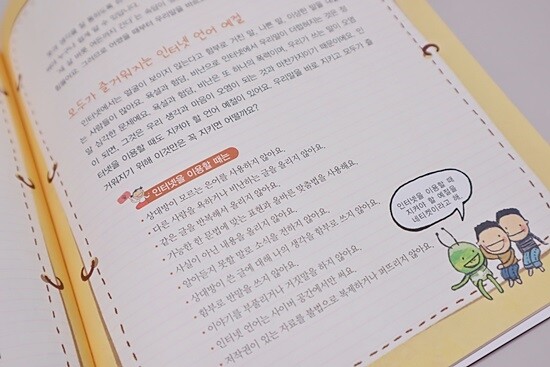 모두가 즐거워지는 인터넷 언어 예절
인터넷에서는 얼굴이 보이지 않는다고 함부로 거친 말, 나쁜 말, 이상한 말을 해대
는 사람들이 많아요. 욕설과 험담, 비난으로 인터넷에서 우리말이 더럽혀지는 것은 정
말 심각한 문제예요. 욕설과 험담, 비난은 또 하나의 폭력이며, 우리가 쓰는 말이 오염
이 되면, 그것은 우리 생각과 마음이 오염이 되는 것과 마찬가지이기 때문이에요. 인
터넷을 이용할 때도 지켜야 할 언어 예절이 있어요. 우리말을 바로 지키고 모두가 즐
거워지기 위해 이것만은 꼭 지키면 어떨까요?
인터넷을 이용할 때는
• 상대방이 모르는 은어를 사용하지 않아요.
• 다른 사람을 욕하거나 비난하는 글을 올리지 않아요.
• 같은 글을 반복해서 올리지 않아요.
• 가능한 한 문법에 맞는 표현과 올바른 맞춤법을 사용해요.
• 사실이 아닌 내용을 올리지 않아요.
• 알아듣지 못할 말로 소식을 전하지 않아요.
• 상대방이 쓴 글에 대해 나의 생각을 함부로 쓰지 않아요.
• 함부로 반말을 쓰지 않아요.
• 이야기를 부풀리거나 거짓말을 하지 않아요.
• 인터넷 언어는 사이버 공간에서만 써요.
• 저작권이 있는 자료를 불법으로 복제하거나 퍼뜨리지 않아요.
인터넷을 이용할 때
지켜야 할 예절을
네티켓이라고 해.